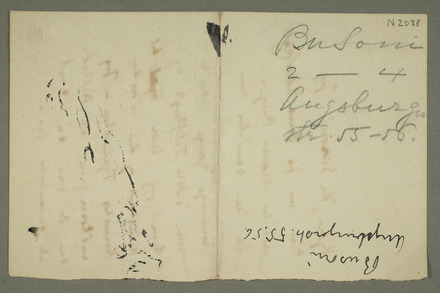 N2038
BuSoni
2 — 4
Augsburger
str. 55-56.
Busoni
Augsburgerstr. 55.56